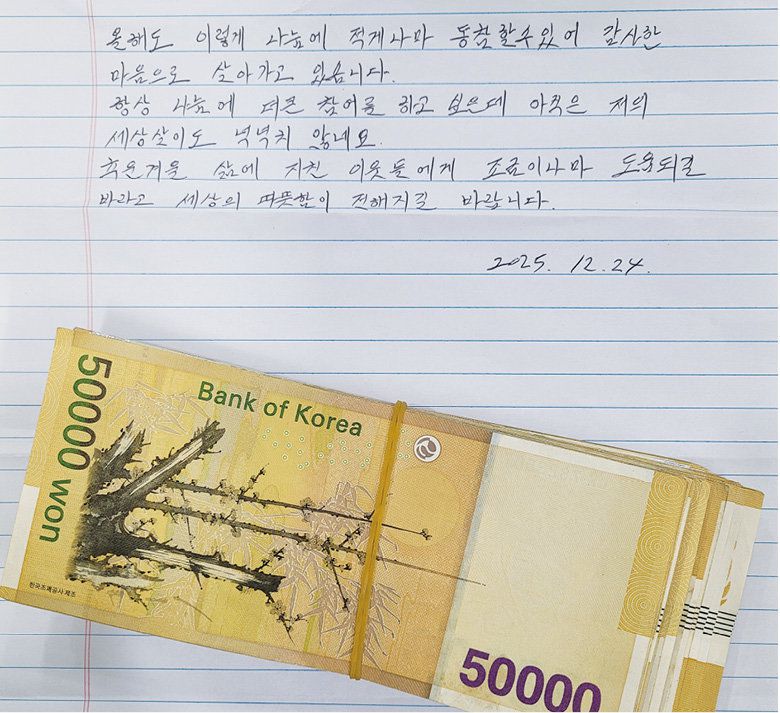 올해도 이렇게 나눔에 적게나마 동참할수있어 감사한
마음으로 살아가고 있습니다.
항상 나눔에 더큰 참여를 하고 싶은데 아직은 저의
세상살이도 넉넉치 않네요.
추운겨울 삶에 지친 이웃들에게 조금이나마 도움되길
바라고 세상의 따뜻함이 전해지길 바랍니다.
2025. 12. 24.
50000 won
Bank of Korea
한국조폐공사 제조
50000